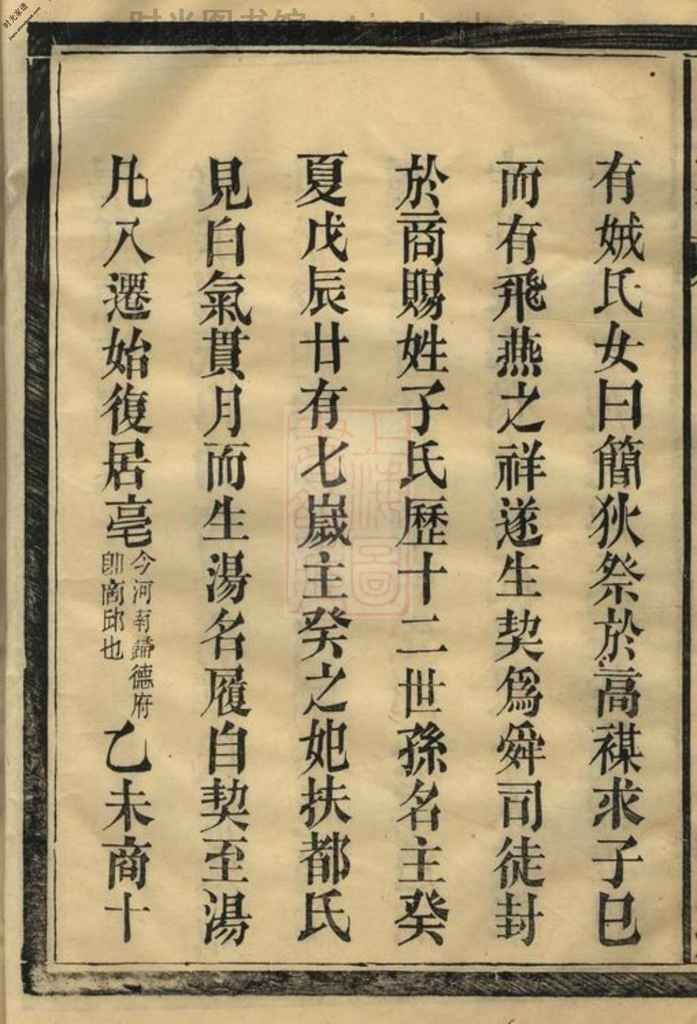 有娀氏女曰簡狄祭於高禖求子巳
而有飛燕之祥遂生契為舜司徒封
於商賜姓子氏歷十二世孫名主癸
夏戊辰廿有七嵗主癸之妃扶都氏
見白氣貫月而生湯名履自契至湯
凡八遷始復居亳今河南歸德府即商邱也乙未商十